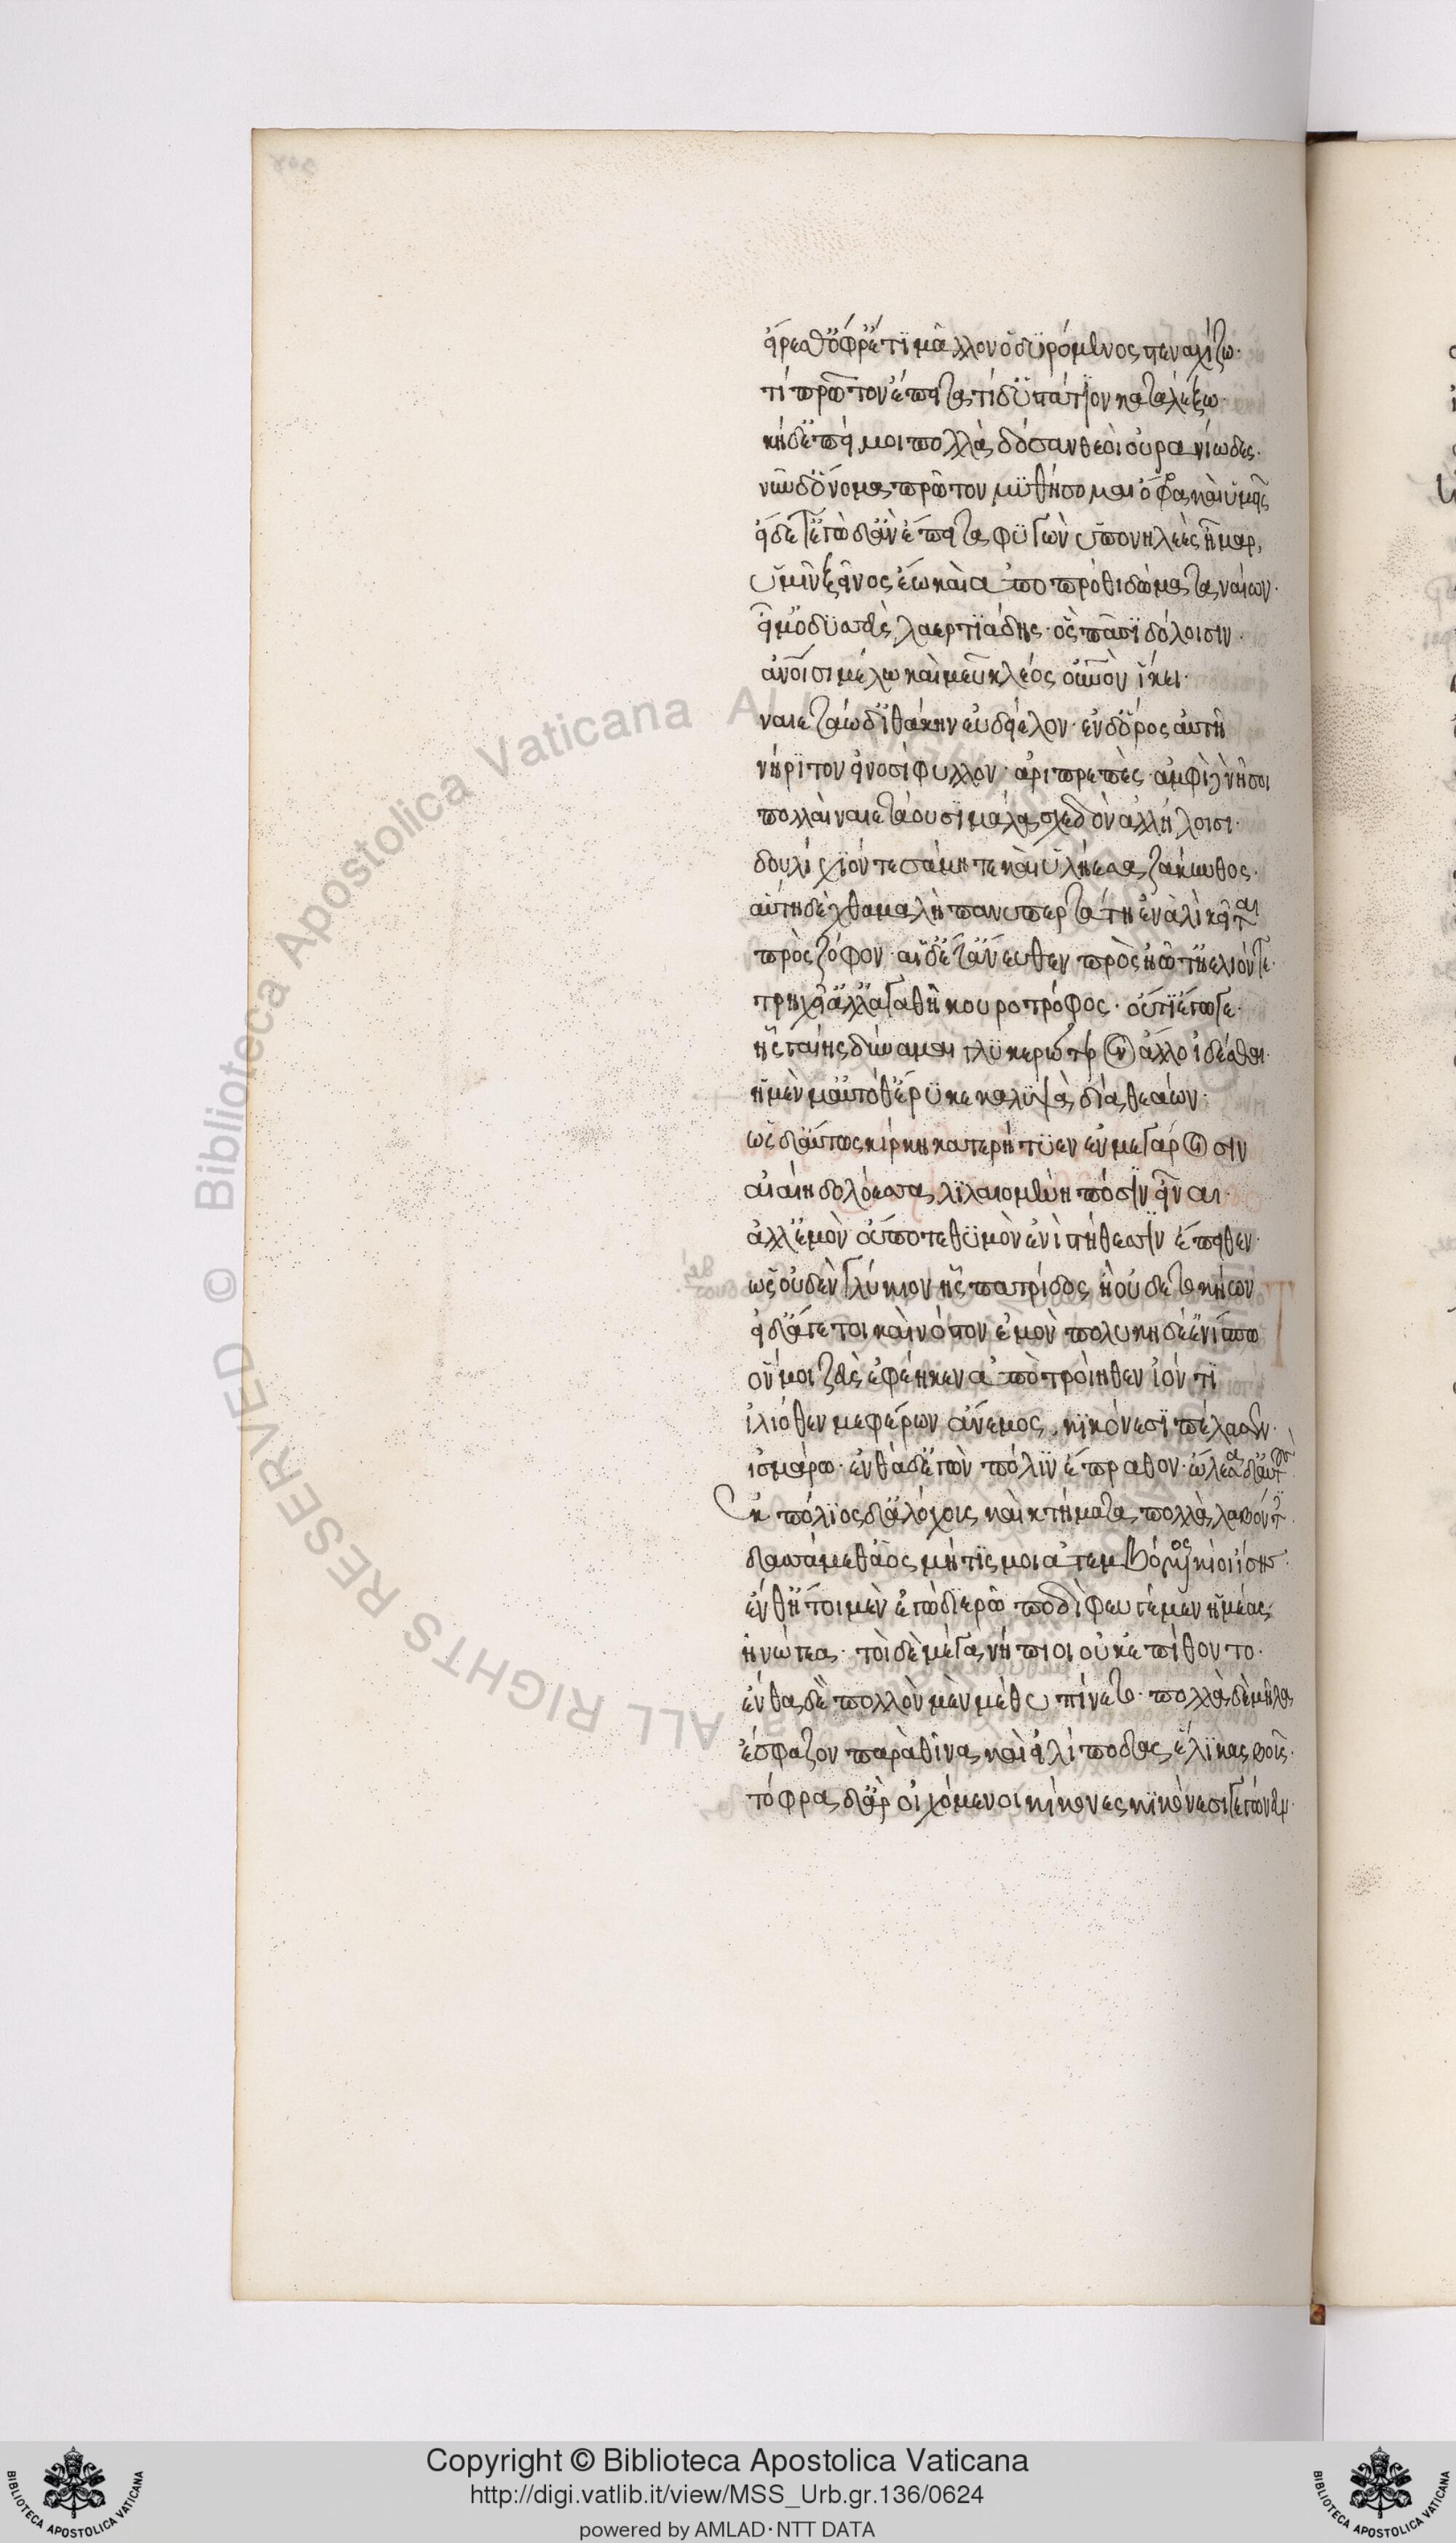 εἴρεσθ' ὄφρ' ἔτι μᾶλλον ὀδυρόμενος στεναχίζω·
τί πρῶτον ἔπειτα, τί δ' ὑστάτιον καταλέξω·
κήδε' ἐπεί μοι πολλὰ δόσαν θεοὶ οὐρανίωνες·
νῦν δ' ὄνομα πρῶτον μυθήσομαι ὄφρα καὶ ὑμεῖς
εἴδετ' ἐγὼ δ' ἂν ἔπειτα φυγὼν ὕπο νηλεὲς ἦμαρ,
ὑμῖν ξεῖνος ἔω καὶ ἀπόπροθι δώματα ναίων·
εἴμ' ὀδυσσεὺς λαερτιάδης· ὃς πᾶσι δόλοισιν
ἀνοῖσι μέλω καί μευ κλέος οὐνὸν ἵκει·
ναιετάω δ' ἰθάκην εὐδείελον· ἐν δ' ὄρος αὐτῇ
νήριτον εἰνοσίφυλλον· ἀριπρεπὲς· ἀμφὶ δὲ νῆσοι
πολλαὶ ναιετάουσι μάλα σχεδὸν ἀλλήλοισι·
δουλίχιόν τε σάμη τε καὶ ὑλήεσσα ζάκυνθος·
αὐτὴ δὲ χθαμαλὴ πανυπερτάτη εἰν ἁλὶ κεῖται
πρὸς ζόφον· αἱ δέ τ' ἄνευθεν πρὸς ἠῶ τ' ἠέλιόν τε·
τρηχεῖ' ἀλλ' ἀγαθὴ κουροτρόφος· οὔτι ἔγωγε
ἧς γαίης δύναμαι γλυκερώτερον ἄλλο ἰδέσθαι·
ἦ μὲν μ' αὐτόθ' ἔρυκε καλυψὼ δῖα θεάων·
ὡς δ' αὔτως κίρκη κατερήτυεν ἐν μεγάροισιν
αἰαίη δολόεσσα λιλαιομένη πόσιν εἶναι·
ἀλλ' ἐμὸν οὔποτε θυμὸν ἐνὶ στήθεσσιν ἔπειθεν·
ὡς οὐδὲν γλύκιον ἧς πατρίδος ἠ οὐδὲ τοκήων
εἰ δ' ἄγε τοι καὶ νόστον ἐμὸν πολυκηδέ' ἐνίσπω
ὅν μοι ζεὺς ἐφέηκεν ἀπὸ τροίηθεν ἰόντι
ἰλιόθεν με φέρων ἄνεμος κικόνεσι πέλασσεν·
ἰσμάρω· ἔνθα δ' ἐγὼν πόλιν ἔπραθον· ὤλεσα δ' αὐτούς
ἐκ πόλιος δ' ἀλόχους καὶ κτήματα πολλὰ λαβόντες
δασσάμεθ' ὡς μήτις μοι ἀτεμβόμενος κίοι ἴσης·
ἔνθ' ἤτοι μὲν ἐγὼ διερῷ ποδὶ φευγέμεν ἡμέας
ἠνώγεα· τοὶ δὲ μέγα νήπιοι οὐκ ἐπίθοντο·
ἔνθα δὲ πολλὸν μὲν μέθυ πίνετο· πολλὰ δὲ μῆλα
ἔσφαζον παρὰ θῖνα καὶ εἰλίποδας ἕλικας βοῦς·
τόφρα δ' ἄρ' οἰχόμενοι κίκονες κικόνεσι γεγώνευν·
Copyright © Biblioteca Apostolica Vaticana
http://digi.vatlib.it/view/MSS_Urb.gr.136/0624
powered by AMLAD·NTT DATA